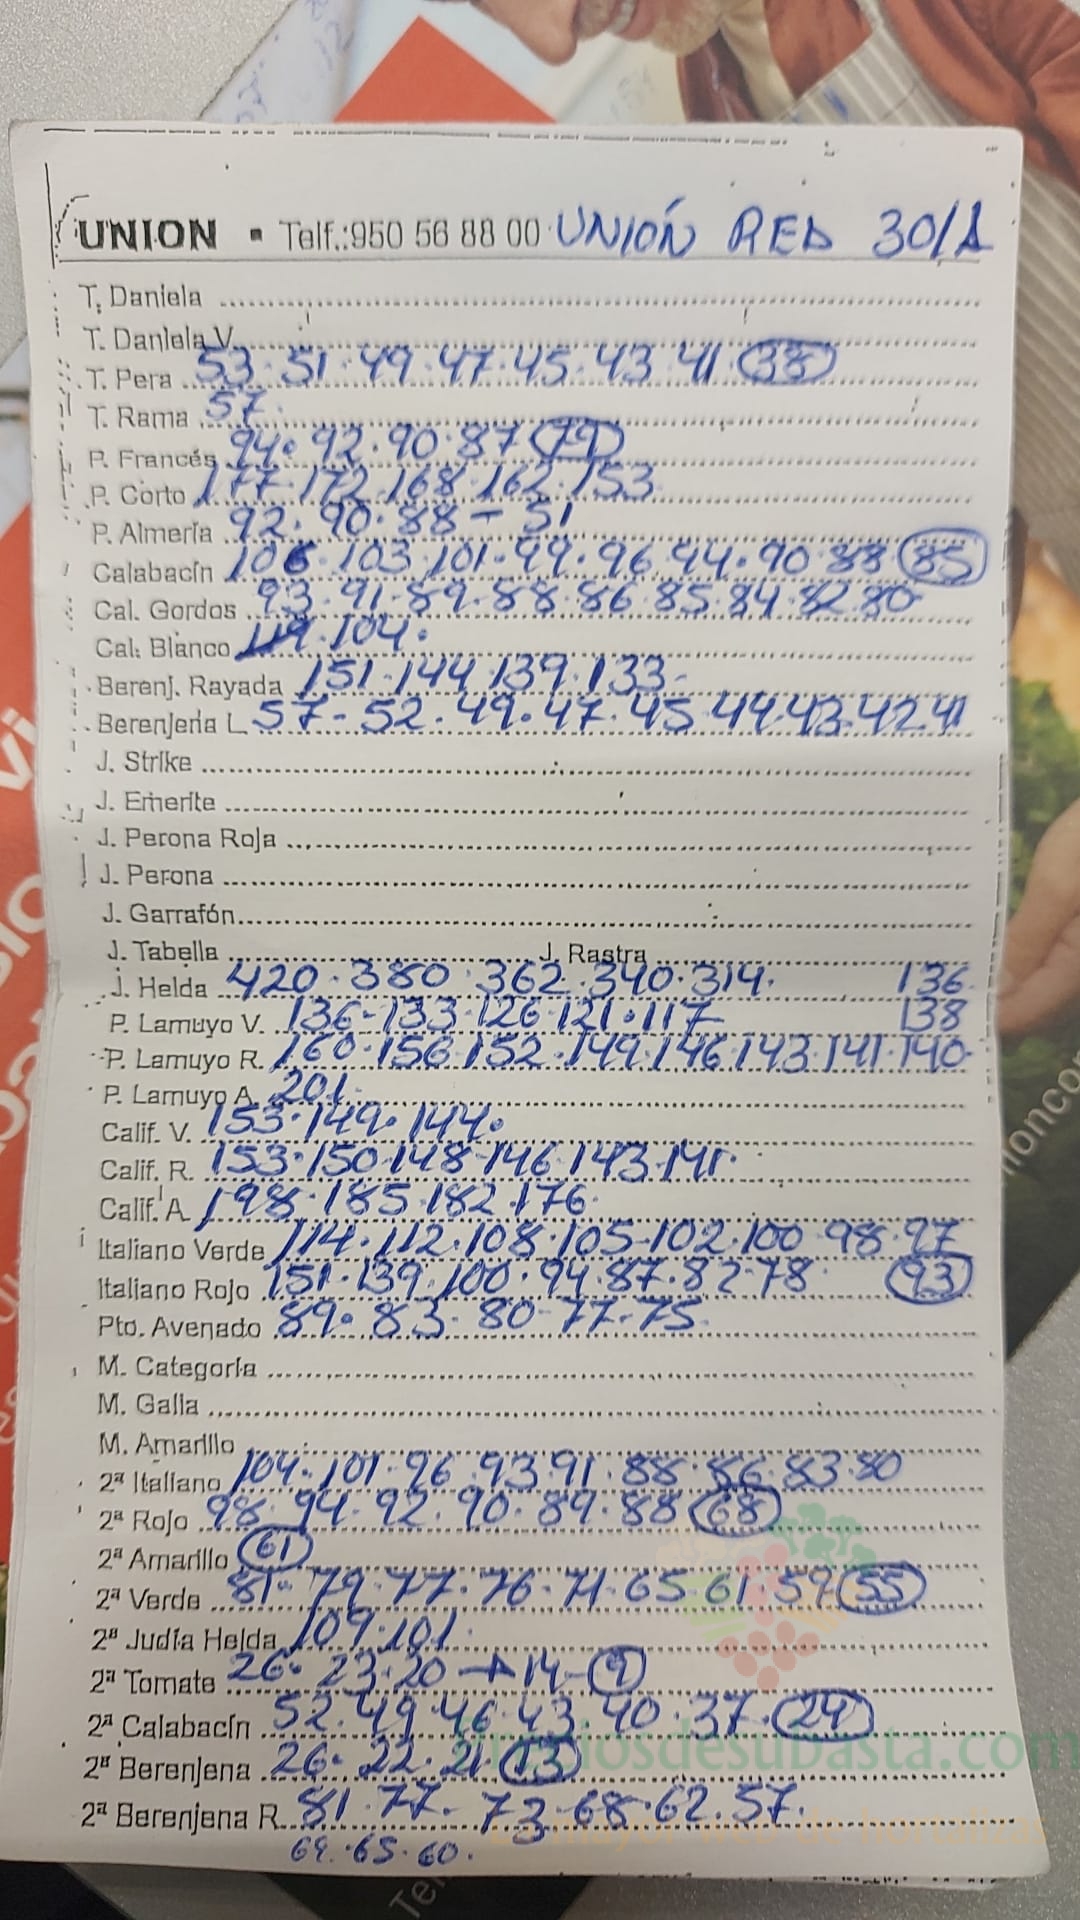 UNION - Telf.:950 56 88 00 UNIÓN RED 30/1
T. Daniela
T. Daniela V.
T. Pera 53 · 51 · 49 · 47 · 45 · 43 · 41 38
T. Rama 57
P. Francés 94 · 92 · 90 · 87 79
P. Corto 177 · 172 · 168 · 162 · 153
P. Almería 92 · 90 · 88 - 51
Calabacín 106 · 103 · 101 · 99 · 96 · 94 · 90 · 88 85
Cal. Gordos 93 · 91 · 89 · 88 · 86 · 85 · 84 · 82 · 80
Cal. Blanco 104 ·
Berenj. Rayada 151 · 144 · 139 · 133
Berenjena L. 57 - 52 · 49 · 47 · 45 · 44 · 43 · 42 · 41
J. Strike
J. Emerite
J. Perona Roja
J. Perona
J. Garrafón
J. Tabella J. Rastra
J. Helda 420 · 380 · 362 · 340 · 314 · 136
P. Lamuyo V. 136 - 133 · 126 · 121 · 117 138
P. Lamuyo R. 160 · 156 · 152 · 149 · 146 · 143 · 141 · 140
P. Lamuyo A. 201
Calif. V. 153 · 149 · 144 ·
Calif. R. 153 · 150 · 148 · 146 · 143 · 141 ·
Calif. A 198 · 185 · 182 · 176
Italiano Verde 114 · 112 · 108 · 105 - 102 · 100 · 98 · 97
Italiano Rojo 151 · 139 · 100 · 94 · 87 · 82 - 78 93
Pto. Avenado 89 · 83 · 80 - 77 · 75
M. Categoría
M. Galia
M. Amarillo
2ª Italiano 104 · 101 · 96 · 93 · 91 · 88 · 86 · 83 · 80
2ª Rojo 98 · 94 · 92 · 90 · 89 · 88 68
2ª Amarillo 61
2ª Verde 81 · 79 · 77 · 76 · 71 · 65 · 61 · 59 55
2ª Judía Helda 109 · 101
2ª Tomate 26 · 23 · 20 → 14 - 9
2ª Calabacín 52 · 49 · 46 · 43 · 40 · 37 · 29
2ª Berenjena 26 · 22 · 21 13
2ª Berenjena R. 81 · 77 · 73 · 68 · 62 · 57 ·
69 · 65 · 60 ·